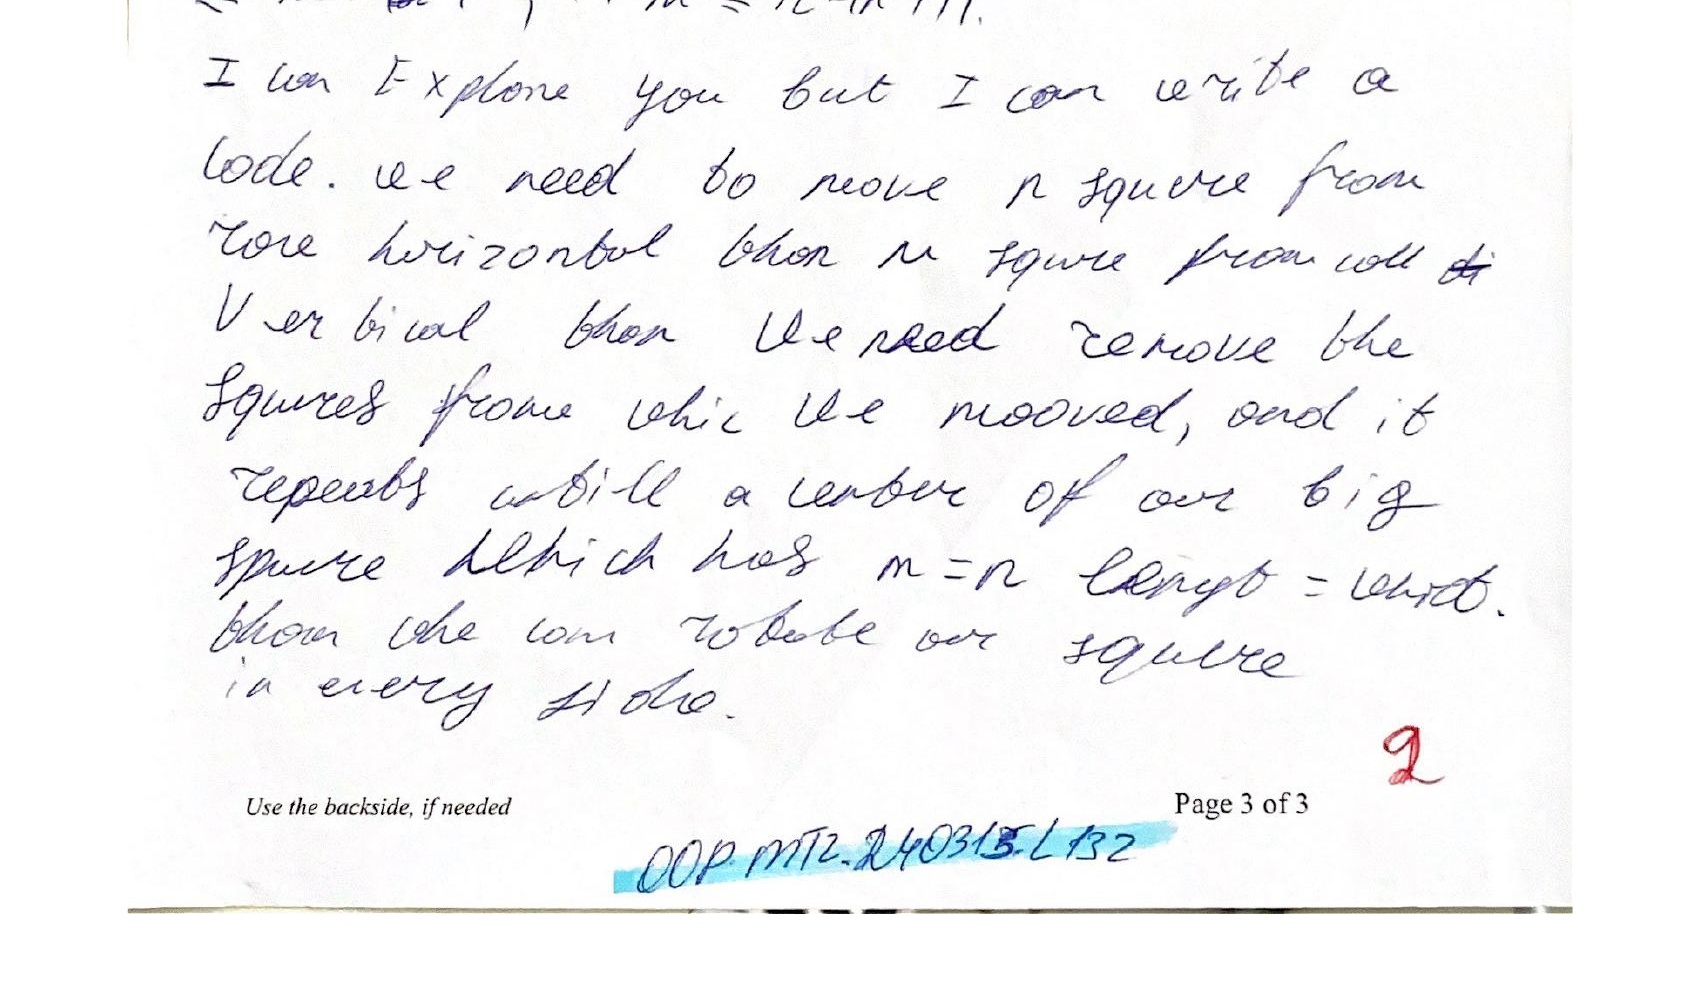 I can Explane you but I can write a
code. we need to move n squere from
rore horizontal than m squre from coll
Vertical than We need remove the
squres frome whic We mooved, and it
repeats untill a center of our big
squre Which has m=n lengt = whidt.
than whe can rotate our squere
in every side.
2
Use the backside, if needed
Page 3 of 3
OOP.MT2.240315.L132